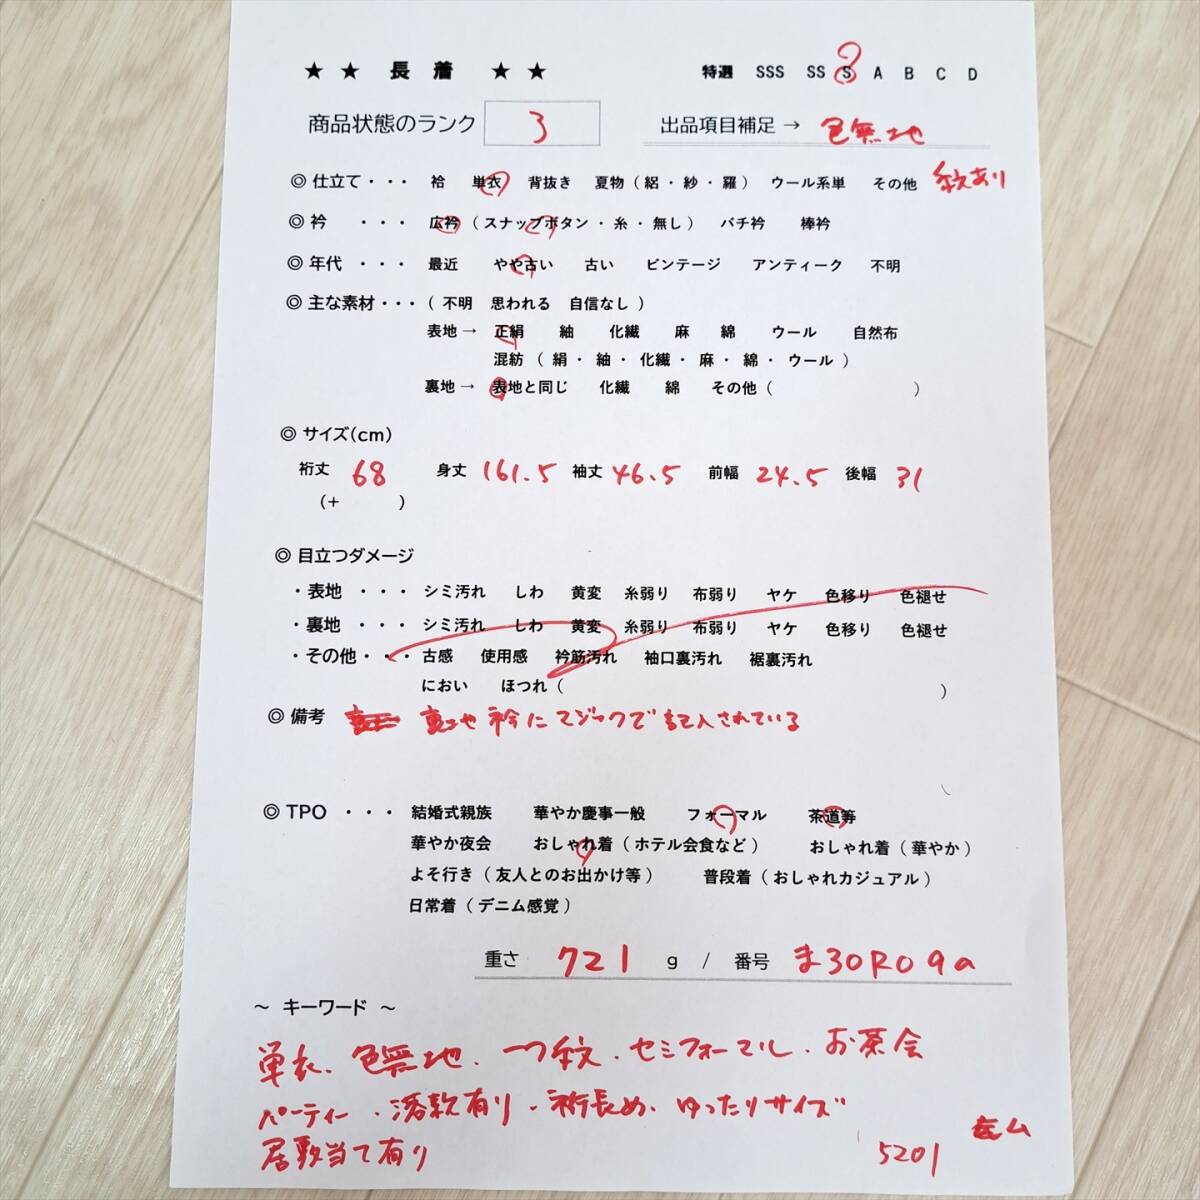 ★ ★ 長 着 ★ ★ 特選 SSS SS S A B C D
商品状態のランク 3 出品項目補足 → 色無地
◎ 仕立て・・・ 袷 単衣 背抜き 夏物（絽・紗・羅） ウール系単 その他 紋あり
◎ 衿 ・・・ 広衿（スナップボタン・糸・無し） バチ衿 棒衿
◎ 年代 ・・・ 最近 やや古い 古い ビンテージ アンティーク 不明
◎ 主な素材・・・（不明 思われる 自信なし）
表地 → 正絹 紬 化繊 麻 綿 ウール 自然布
混紡（絹・紬・化繊・麻・綿・ウール）
裏地 → 表地と同じ 化繊 綿 その他（ ）
◎ サイズ(cm)
裄丈 68 身丈 161.5 袖丈 46.5 前幅 24.5 後幅 31
（+ ）
◎ 目立つダメージ
・表地 ・・・ シミ汚れ しわ 黄変 糸弱り 布弱り ヤケ 色移り 色褪せ
・裏地 ・・・ シミ汚れ しわ 黄変 糸弱り 布弱り ヤケ 色移り 色褪せ
・その他・・・ 古感 使用感 衿筋汚れ 袖口裏汚れ 裾裏汚れ
におい ほつれ（ ）
◎ 備考 裏地 衿にマジックで記入されている
◎ TPO ・・・ 結婚式親族 華やか慶事一般 フォーマル 茶道等
華やか夜会 おしゃれ着（ホテル会食など） おしゃれ着（華やか）
よそ行き（友人とのお出かけ等） 普段着（おしゃれカジュアル）
日常着（デニム感覚）
重さ 721 g / 番号 ま30R09a
～ キーワード ～
単衣、色無地、一つ紋、セミフォーマル、お茶会
パーティー、落款有り、裄長め、ゆったりサイズ
居敷当て有り 5201